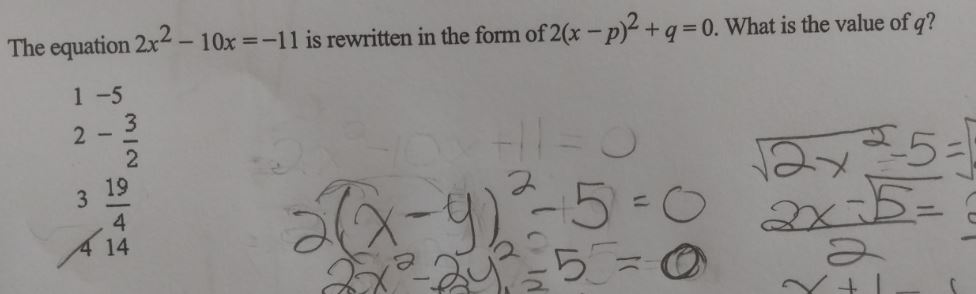 The equation 2x² – 10x = –11 is rewritten in the form of 2(x – p)² + q = 0. What is the value of q?
1 –5
2 – 3/2
3 19/4
4 14
2x² -10x +11 = 0
2(x-y)² -5 = 0
2x² - 2y² = 5 = 0
√2x² -5 =
2x - √5 =
2
x + 1